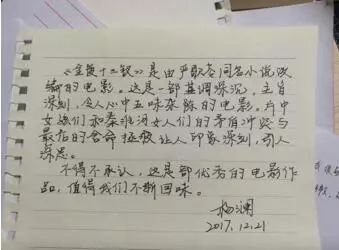 《金陵十三钗》是由严歌苓同名小说改
编的电影。这是一部基调深沉，主旨
深刻，令人心中五味杂陈的电影。片中
女孩们和秦淮河女人们的矛盾冲突与
最后的舍命拯救让人印象深刻，引人
深思。
不得不承认，这是部优秀的电影作
品，值得我们不断回味。
杨澜
2017.12.21